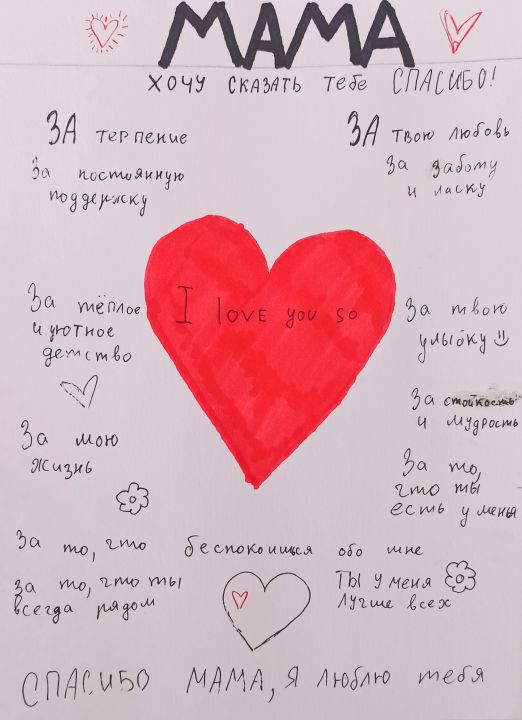 МАМА
ХОЧУ СКАЗАТЬ тебе СПАСИБО!
ЗА терпение
За постоянную
поддержку
ЗА твою любовь
За заботу
и ласку
За тёплое
и уютное
детство
I love you so
За твою
улыбку
За стойкость
и мудрость
За мою
жизнь
За то,
что ты
есть у меня
За то, что беспокоишся обо мне
За то, что ты
всегда рядом
Ты у меня
лучше всех
СПАСИБО МАМА, Я люблю тебя